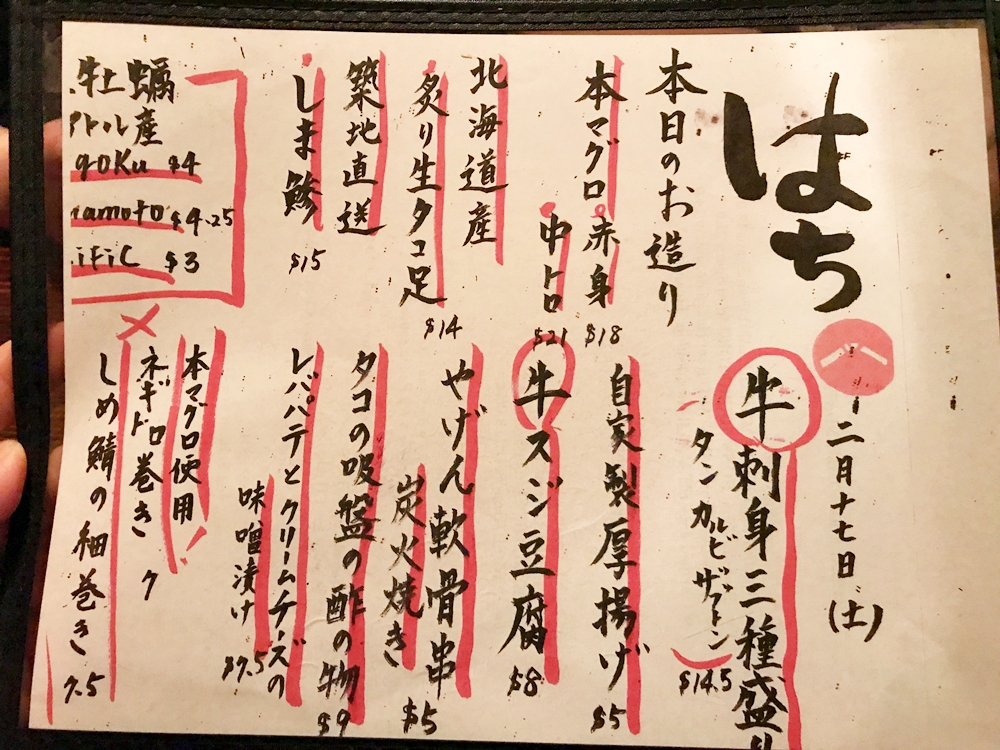 はち
二月十七日(土)
本日のお造り
本マグロ赤身
$18
中トロ
$21
北海道産
炙り生タコ足
$14
築地直送
しま鯵
$15
牡蠣
トル産
goKu $4
amoto $4.25
ific $3
牛刺身三種盛り
タン カルビ ザブトン
$14.5
自家製厚揚げ
$5
牛スジ豆腐
$8
やげん軟骨串
炭火焼き
$5
タコの吸盤の酢の物
$9
レバパテとクリームチーズの
味噌漬け
$7.5
本マグロ使用!
ネギトロ巻き ク
しめ鯖の細巻き
7.5